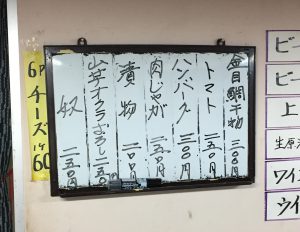 金目鯛干物 三〇〇円
トマト 二五〇円
ハンバーグ 三〇〇円
肉じゃが 三五〇円
漬物 二〇〇円
山芋オクラおろし 二五〇
奴 二五〇円
6Pチーズ 1ケ60
ビー
ビー
上
生原酒
ワイン
ウイ